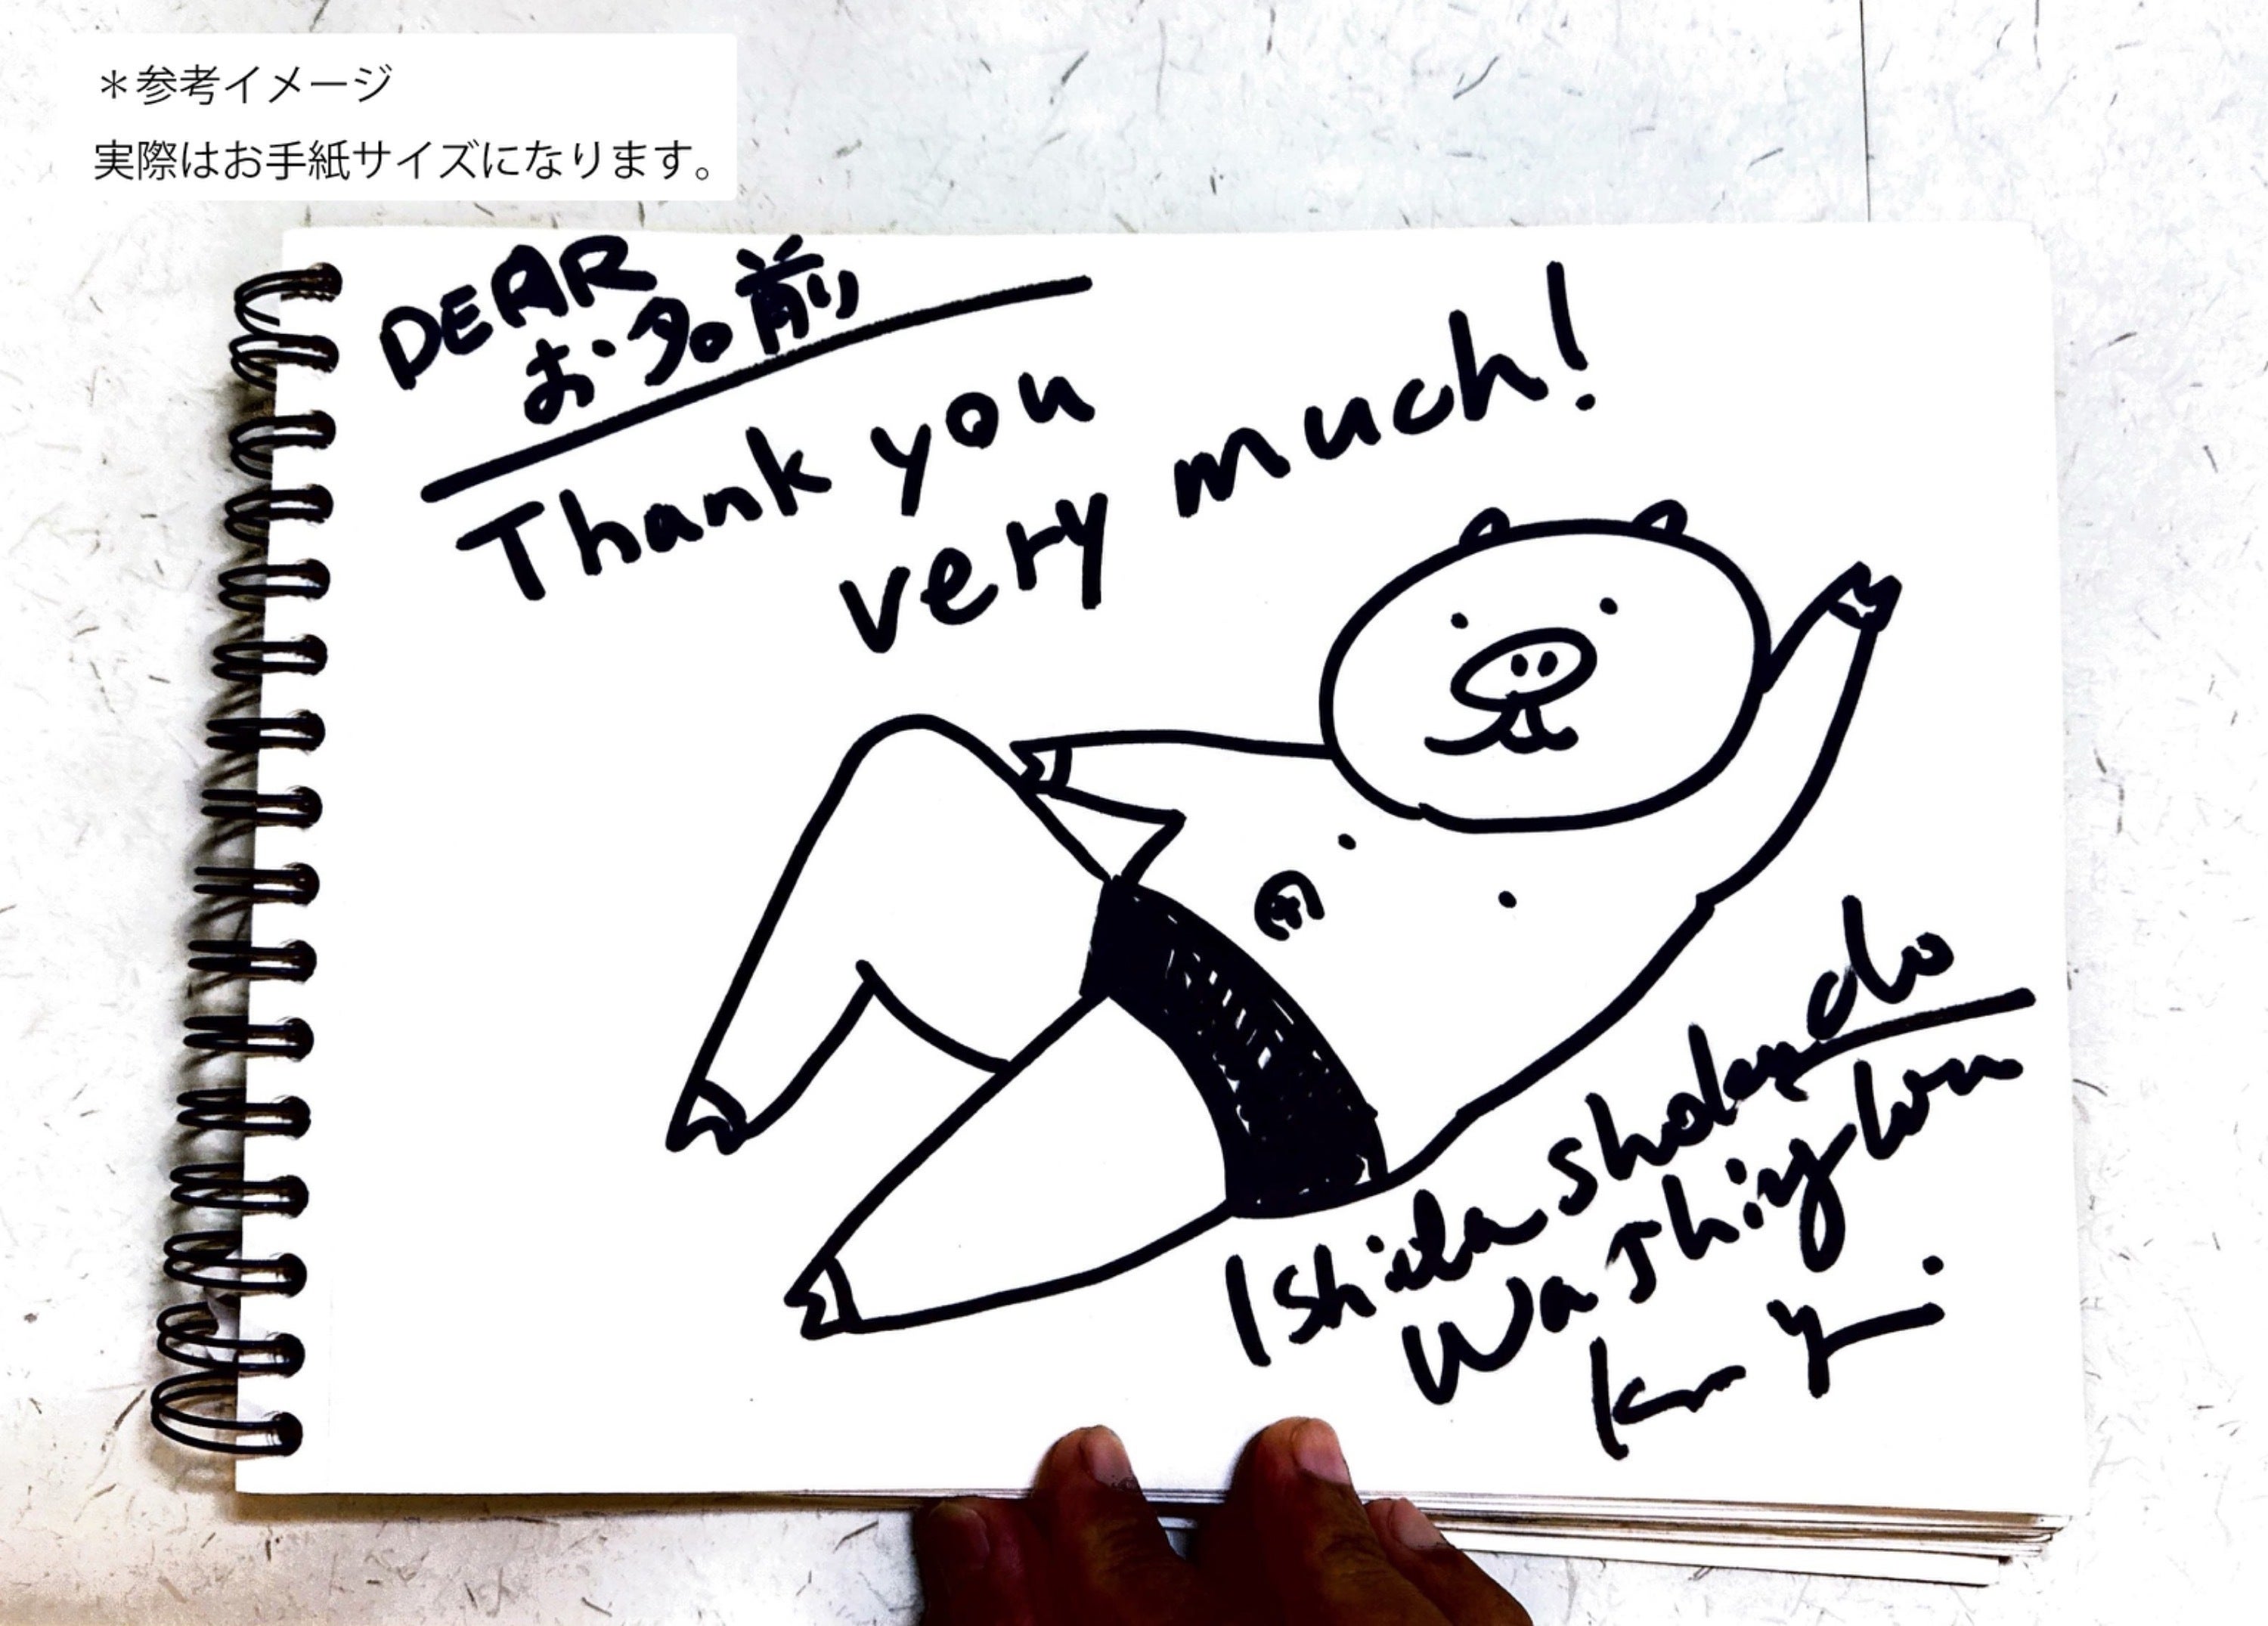 ＊参考イメージ
実際はお手紙サイズになります。
DEAR
お名前
Thank you
very much!
Ishida shokendo
Washington